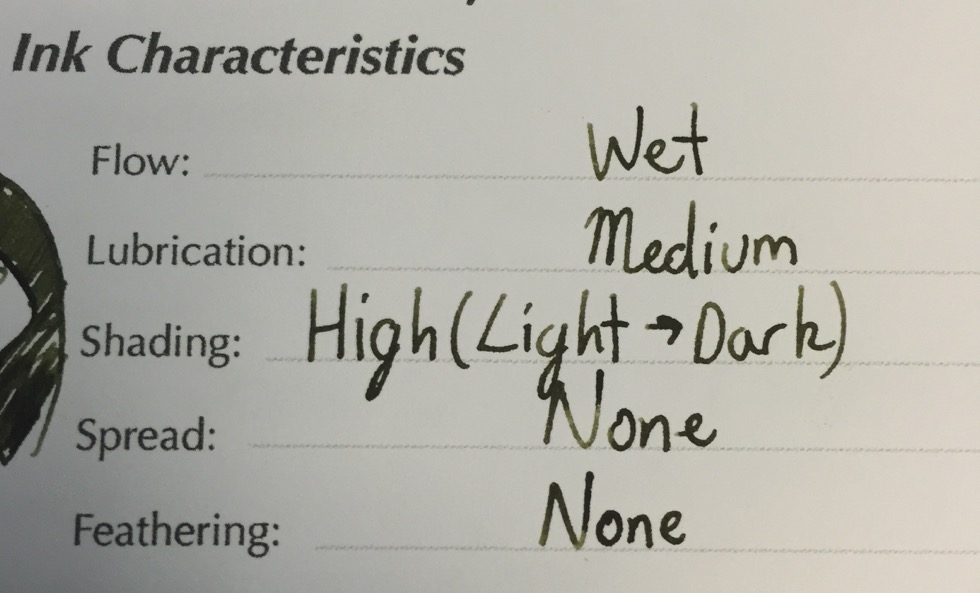 Ink Characteristics
Flow: Wet
Lubrication: Medium
Shading: High (Light → Dark)
Spread: None
Feathering: None